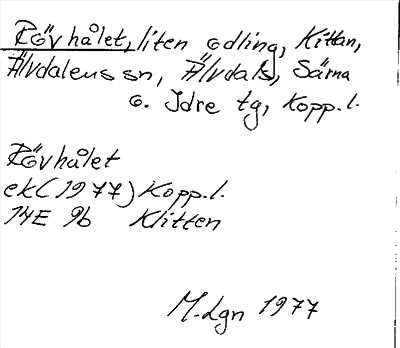 Rövhålet, liten odling, Kittan,
Älvdalens sn, Älvdals, Särna
o. Idre tg, Kopp.l.
Rövhålet
ek (1977) Kopp.l.
14E 9b Klitten
M. Lgn 1977